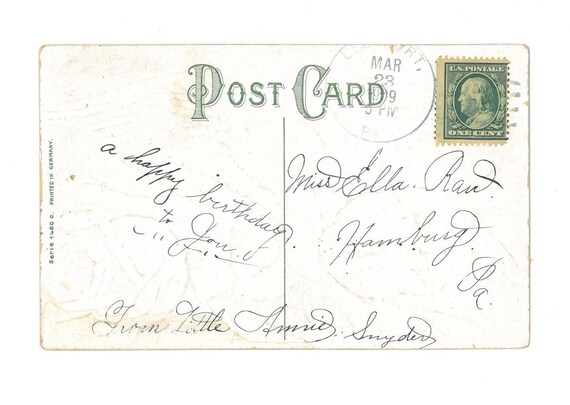 POST CARD
MAR
23
5 PM
U.S. POSTAGE
ONE CENT
Serie 1480 C. PRINTED IN GERMANY.
a happy birthday
to You.
Miss Ella. Rau.
Hamburg
Pa.
From Little Annie. Snyder